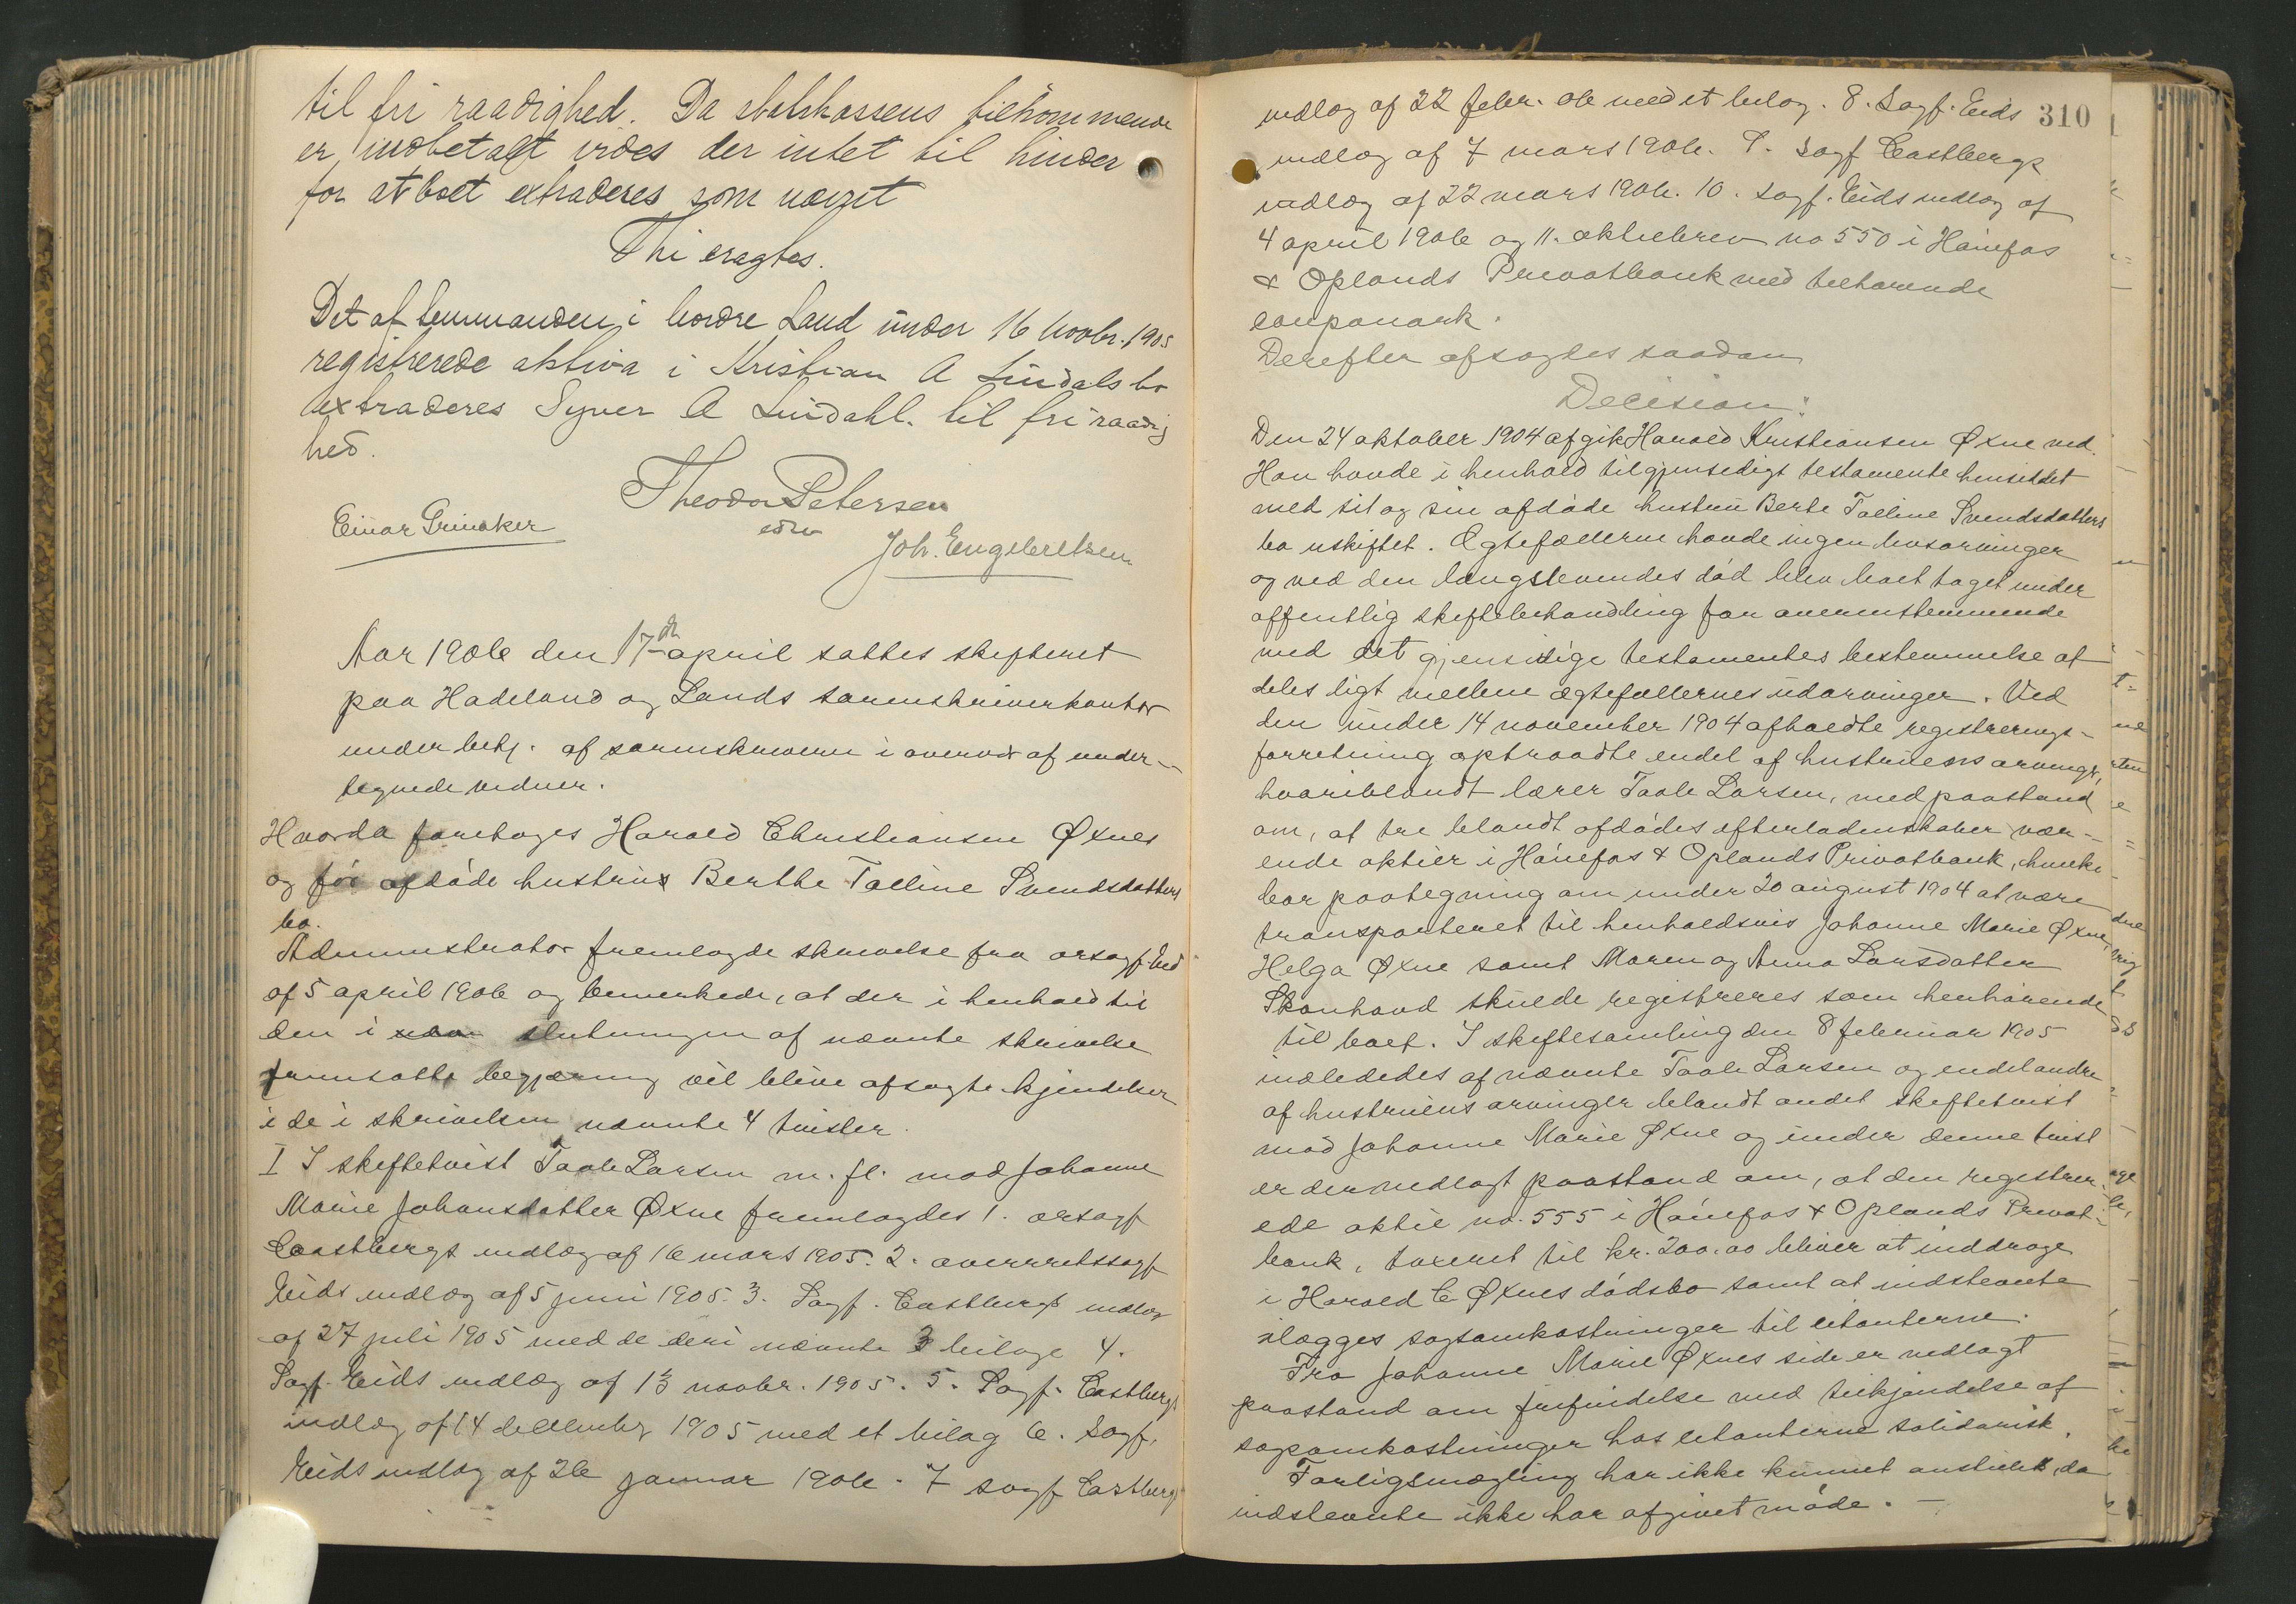 til fri raadighed. Da statskassens tilkommende
er indbetalt vides der intet til hinder
for at boet extraderes som nævnt
Thi eragtes.
Det af lensmanden i nordre Land under 16 novbr. 1905
registrerede aktiva i Kristian A Lindals bo
extraderes Syver A Lindahl til fri raadig
hed.
Theodor Petersen
edsv
Einar Grinaker
Joh. Engebretsen
Aar 1906 den 17de april sattes skifteret
paa Hadeland og Lands sorenskriverkontor
under betj. af sorenskriveren i overvær af under-
tegnede vidner.
Hvorda foretoges Harald Christiansen Øxnes
og før afdøde hustrus Berthe Talline Svendsdatters
bo.
Administrator fremlagde skrivelse fra orsagf. Eid
af 5 april 1906 og bemerkede, at der i henhold til
den i slutningen af nævnte skrivelse
fremsatte begjæring vil blive afsagte kjendelser
i de i skrivelsen nævnte 4 tvister.
I I skiftetvist Taale Larsen m. fl. mod Johanne
Marie Johansdatter Øxne fremlagdes 1. orsagf
Castbergs indlæg af 16 mars 1905. 2. overretssagf
Eids indlæg af 5 juni 1905. 3. Sagf. Castbergs indlæg
af 27 juli 1905 med de deri nævnte 3 bilage 4.
Sagf. Eids indlæg af 13 novbr. 1905. 5. Sagf. Castbergs
indlæg af 14 december 1905 med et bilag 6. Sagf.
Eids indlæg af 26 januar 1906. 7 sagf Castbergs
310
indlæg af 22 febr. 06 med et bilag. 8. Sagf. Eids
indlæg af 7 mars 1906. 9. Sagf Castbergs
indlæg af 22 mars 1906. 10. sagf. Eids indlæg af
4 april 1906 og 11. aktiebrev no 550 i Hønefos
& Oplands Privatbank med tilhørende
couponark.
Derefter afsagdes saadan
Decision:
Den 24 oktober 1904 afgik Harald Kristiansen Øxne ved.
Han havde i henhold til gjensidigt testamente hensiddet
med sit og sin afdøde hustru Berte Talline Svendsdatters
bo uskiftet. Ægtefællerne havde ingen livsarvinger
og ved den længstlevendes død blev boet taget under
offentlig skiftebehandling for overensstemmende
med det gjensidige testamentes bestemmelse at
deles ligt mellem ægtefællernes udarvinger. Ved
den under 14 november 1904 afholdte registrerings-
forretning optraadte endel af hustruens arvinger,
hvoriblandt lærer Taale Larsen, med paastand
om, at tre blandt afdødes efterladenskaber vær-
ende aktier i Hønefos & Oplands Privatbank, hvilke
bar paategning om under 20 august 1904 at være
transporteret til henholdsvis Johanne Marie Øxne,
Helga Øxne samt Maren og Anna Larsdatter
Skonhovd skulde registreres som henhørende
til boet. I skiftesamling den 8 februar 1905
indlededes af nævnte Taale Larsen og endel andre
af hustruens arvinger blandt andet skiftetvist
mod Johanne Marie Øxne og under denne tvist
er der nedlagt paastand om, at den registrer-
ede aktie no. 555 i Hønefos & Oplands Privat-
bank, taxeret til kr. 200.00 bliver at inddrage
i Harald C Øxnes dødsbo samt at indstevnte
ilægges sagsomkostninger til citanterne.
Fra Johanne Marie Øxnes side er nedlagt
paastand om frifindelse med tilkjendelse af
sagsomkostninger hos citanterne solidarisk.
Forligsmægling har ikke kunnet anstilles, da
indstevnte ikke har afgivet møde. —